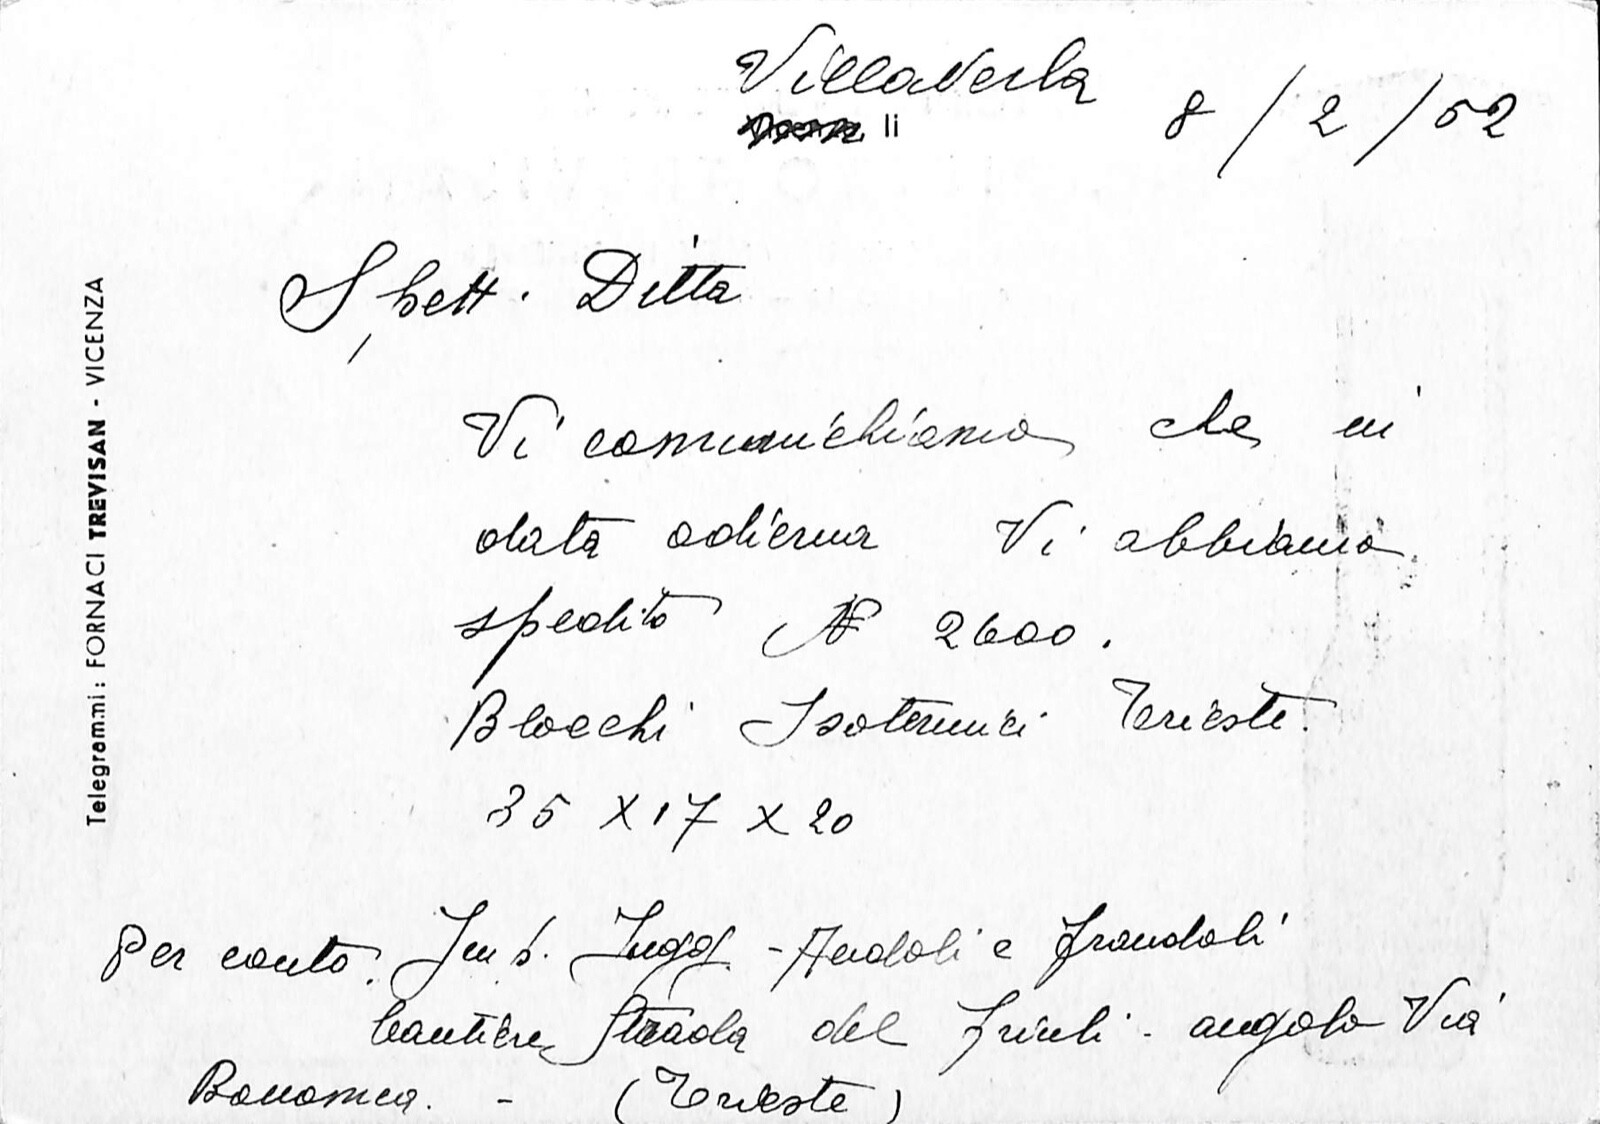 Villaverla
li 8/2/52
Spett. Ditta
Vi comunichiamo che in
data odierna Vi abbiamo
spedito N° 2600.
Blocchi Isotermici Trieste.
35 X 17 X 20
Per conto. Imp. Ingg. - e Frandoli
Cantiere Strada del Friuli - angolo Via
Bonomea. - (Trieste)
Telegrammi: FORNACI TREVISAN - VICENZA